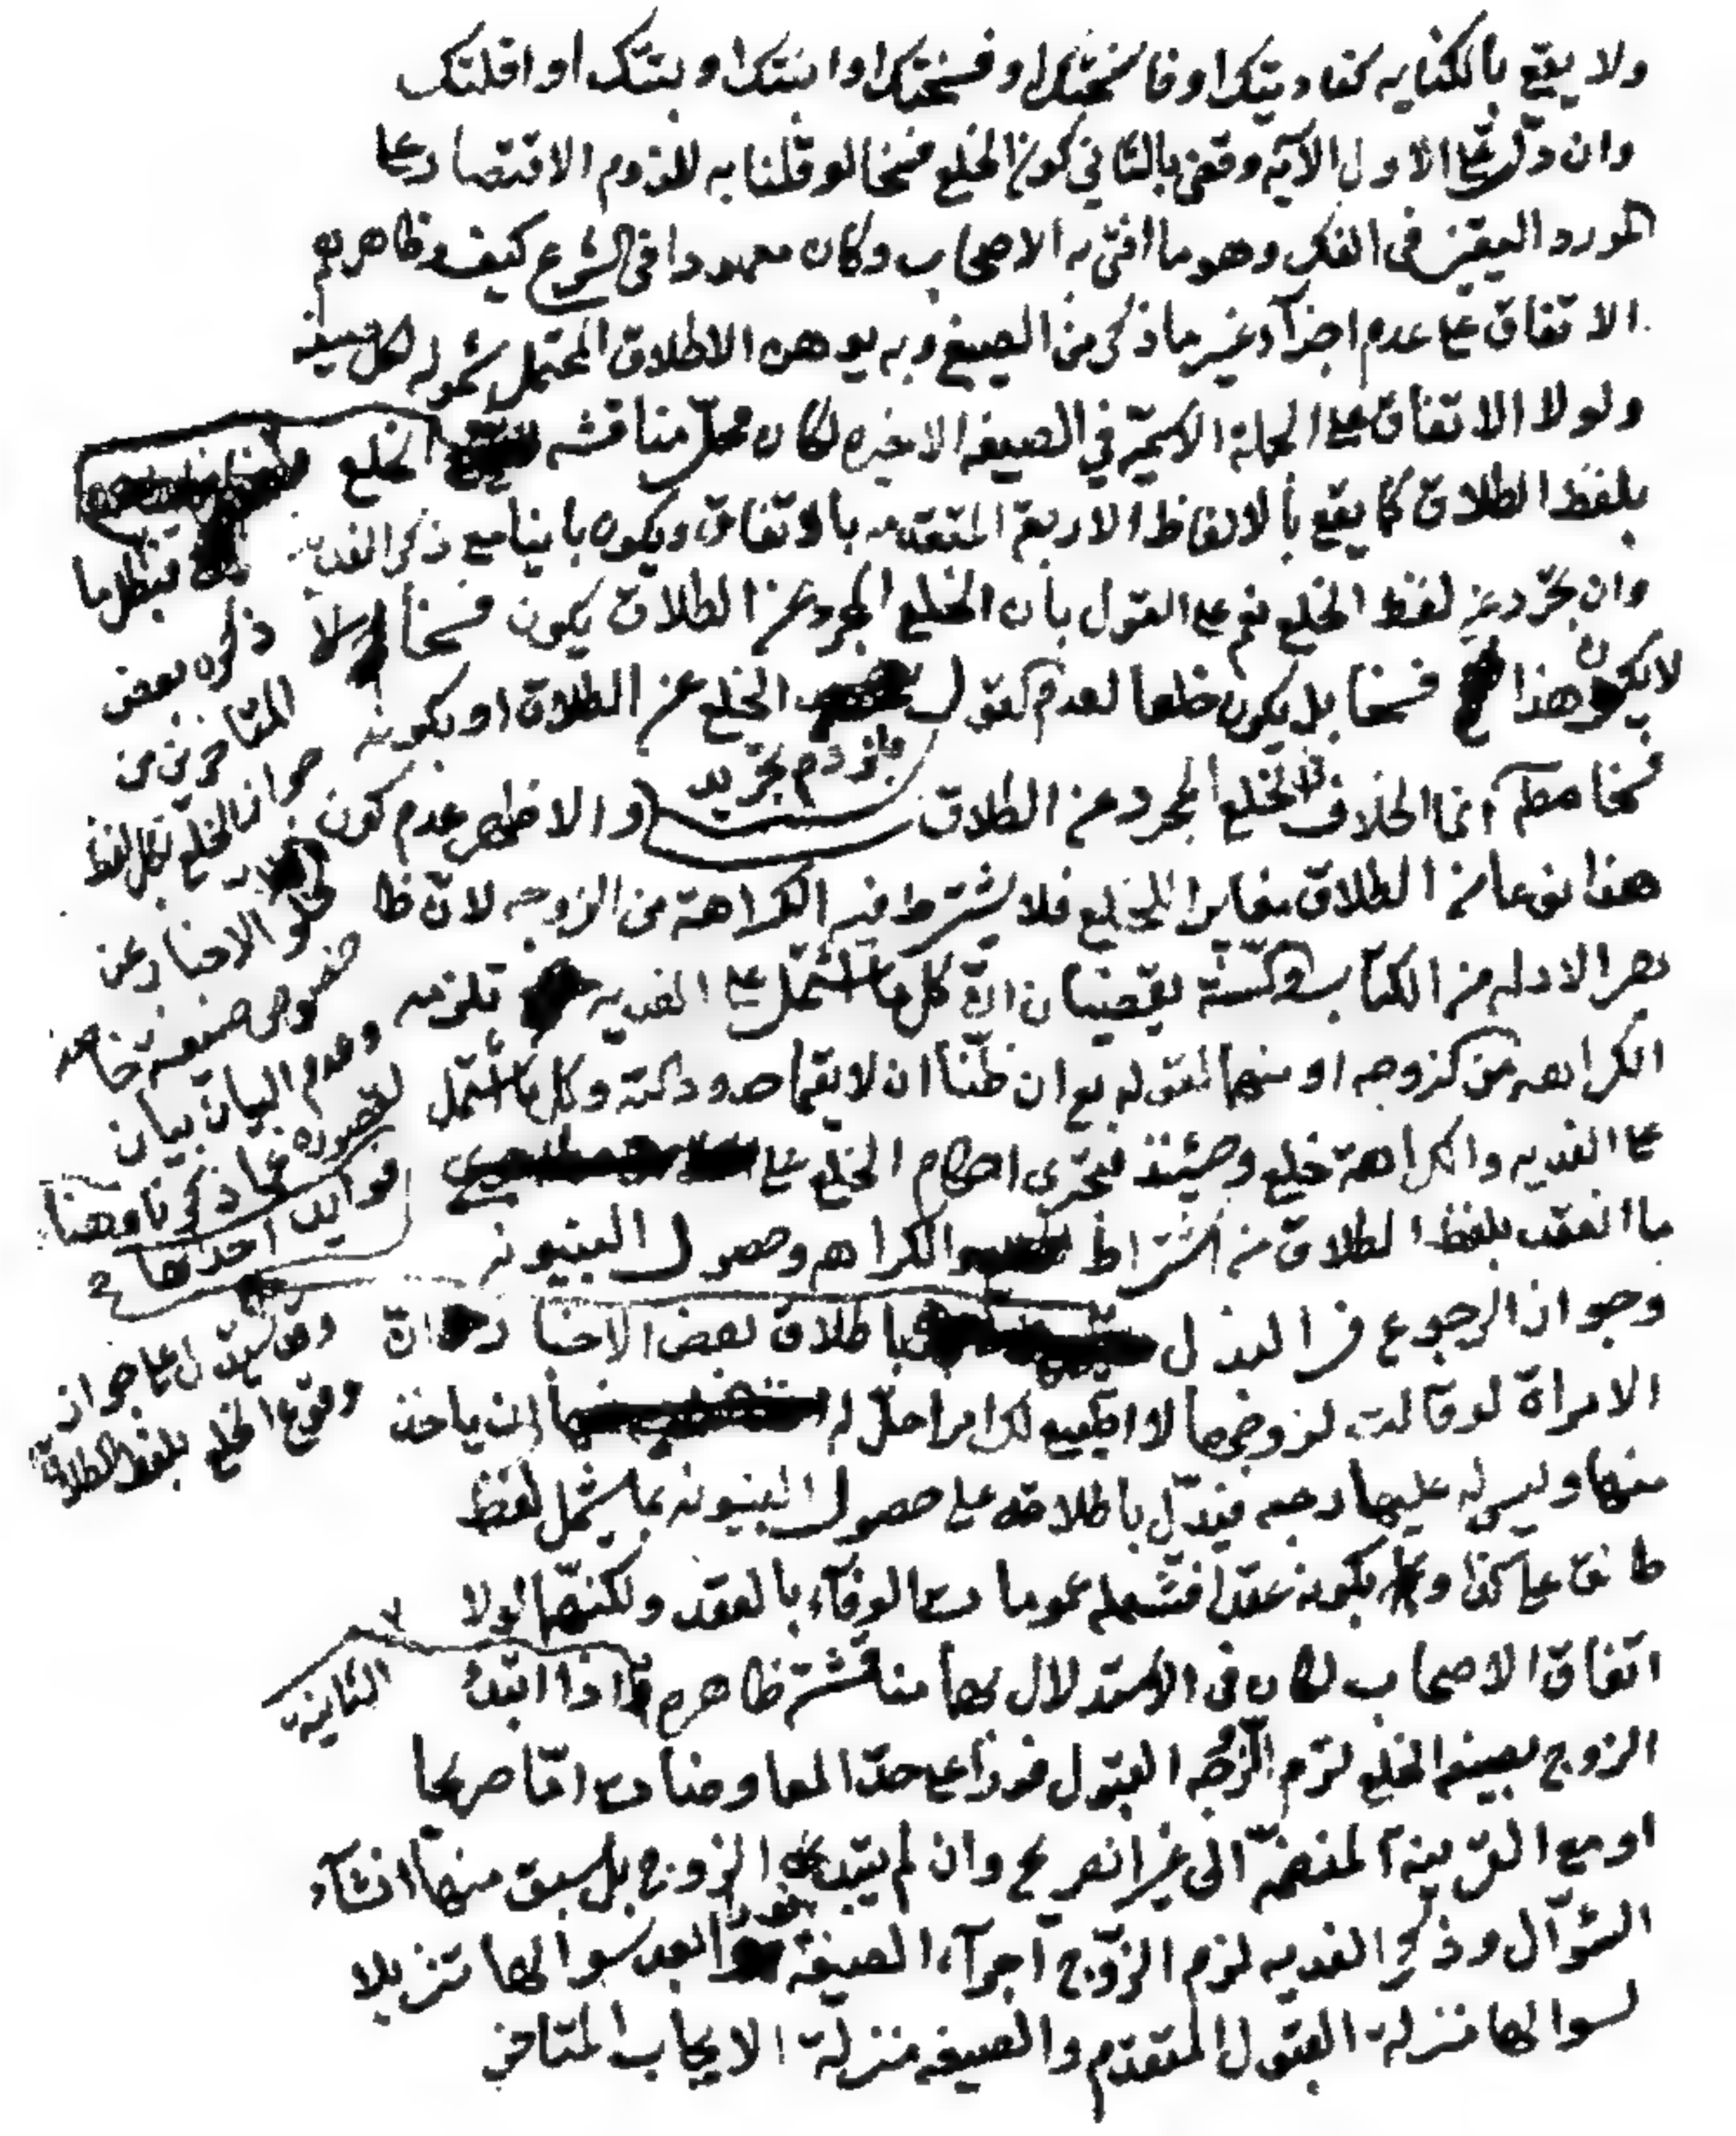 ولا يقع بالكنايه كفاديتك او فاسختك او فسختك او ابنتك او بتتك او اقلتك
وان دل على الاول الآية وقضى بالثاني كون الخلع فسخا لو قلنا به للزوم الاقتصار على
المورد اليقين في الفك وهو ما افتى به الاصحاب وكان معهودا في الشرع كيف وظاهرهم
الاتفاق على عدم اجزآء غير ما ذكر من الصيغ وبه يوهن الاطلاق المحتمل شموله لكل صيغه
ولولا الاتفاق على الجملة الاسميّة في الصيغه الاخيره لكان محلّ مناقشه الخلع
بلفظ الطلاق كما يقع بالالفاظ الاربعة المتقدمه بالاتفاق ويكون باينا مع ذكر الفديه
وان تجرّد عن لفظ الخلع نعم على القول بان الخلع المجرد عن الطلاق يكون فسخا
لا يكون هذا فسخا بل يكون خلعا لعدم القول الخلع عن الطلاق او بكونه
بلزوم تجريد
فسخا مطلقا انما الخلاف في الخلع المجرد عن الطلاق والاظهر عدم كون
هذا نوعا من الطلاق مغايرا للخلع فلا يشترط فيه الكراهة من الزوجه لانّ ظا
هر الادله من الكتاب والسنّة يقضيان انّ كل ما اشتمل على الفديه تلزمه
الكراهه من الزوجه او منهما لقوله تع ان ظنّا ان لا يقيما حدود الله وكل ما اشتمل
على الفديه والكراهة خلع وحينئذ فيجري احكام الخلع على
ما انعقد بلفظ الطلاق من اشتراط الكراهه وحصول البينونه
وجواز الرجوع في البذل باطلاق بعض الاخبار انّ
الامراة لو قالت لزوجها لا اطيع لك امرا حلّ له ان ياخذ
منها وليس له عليها رجعه فيدلّ باطلاقه على حصول البينونه بما يشمل لفظ
طالق على كذا وبكونه عقدا فتشمله عمومات الوفآء بالعقد ولكنها لولا
اتفاق الاصحاب لكان في الاستدلال بها مناقشة ظاهره اذا ابتدء
الزوج بصيغه الخلع لزم الزوجه القبول فورا على حدّ المعاوضات امّا صريحا
او مع القرينة المنضمّة الى غير الصريح وان لم يبتدء الزوج بل سبق منها انشآء
السؤال وذكر الفديه لزم الزّوج اجرآء الصيغة فورا بعد سوالها تنزيلا
لسوالها منزلة القبول المتقدّم والصيغه منزلة الايجاب المتاخر
فيظل ما
ذكره بعض
المتاخرين من
جواز الخلع بكل لفظ
لخلو الاخبار عن
خصوص صيغة خاصه
وعدم البيان بيان
لقصوره عما ذكرنا وهنا
فوايد احدها
وقد يستدل على جواز
وقوع الخلع بلفظ الطلاق
الثانيه